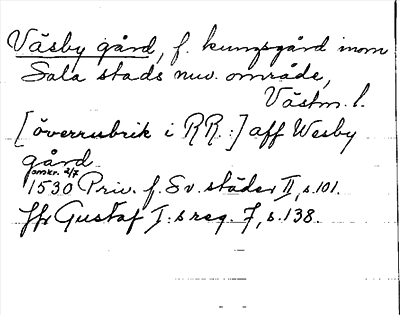 Väsby gård, f. kungsgård inom
Sala stads nuv. område,
Västm. l.
[överrubrik i RR.:] aff Wesby
gård
omkr. 2/7
1530 Priv. f. Sv. städer II, s. 101.
Jfr Gustaf I:s reg. 7, s. 138.